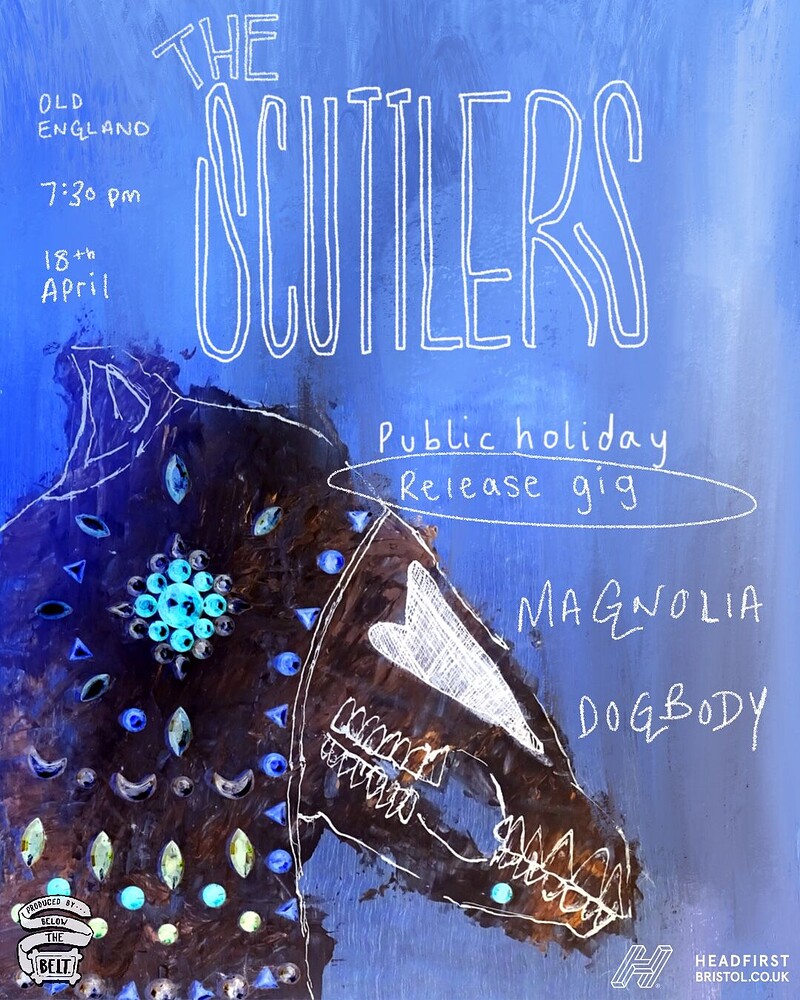 THE
SCUTTLERS
OLD
ENGLAND
7:30 pm
18th
April
Public holiday
Release gig
MAGNOLIA
DOGBODY
PRODUCED BY...
BELOW
THE
BELT
HEADFIRST
BRISTOL.CO.UK